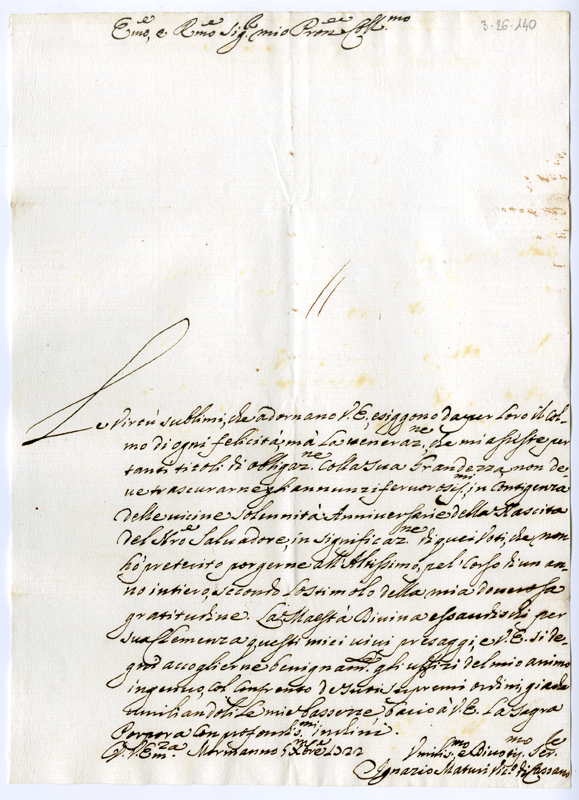 3-26-140
Em̃o, e Rm̃o Sig.re mio Pron̄e Coll.mo
Le Virtù sublimi, che adornano V.E, esiggono da per loro il Col-
mo di ogni felicità, mà La veneraz.ne, che mi assiste per
tanti titoli di obligaz.ne Colla sua Grandezza, non de-
ve trascurarne gli annunzi fervorosis.mi, in Contigenza
delle vicine Solennità Anniversarie della Nascita
del Nr̃o Salvadore, in significaz.ne di quei Voti, che non
hò preterito porgerne all'Altissimo, pel Corso di un an-
no intiero, secondo Lo stimolo della mia doverosa
gratitudine. La Maestà Divina essaudischi per
sua Clemenza questi miei vivi presaggi, e V.E. si de-
gni accoglierne benignam.te gli uffizi del mio animo
ingenuo, col de' suoi supremi ordini, già che
umiliandoli Le mie bassezze, bacio à V.E. La Sagra
Porpora Con profondis.mi inchini.
D. V. Em.za Mormanno 5 Xbre 1722
Umilis.mo e Divotis.mo Ser.re
Ignazio Maturi Vic.o di Cassano